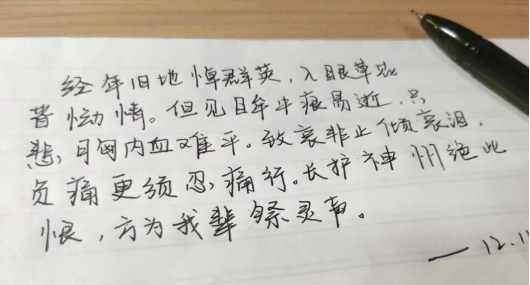 经年旧地悼群英，入眼草木
皆恸情。但见日年牛痕易逝，只
悲，月匈内血难平。致哀非止倾哀泪，
负痛更须忍痛行。长护神州绝此
恨，方为我辈祭灵声。
——12.1